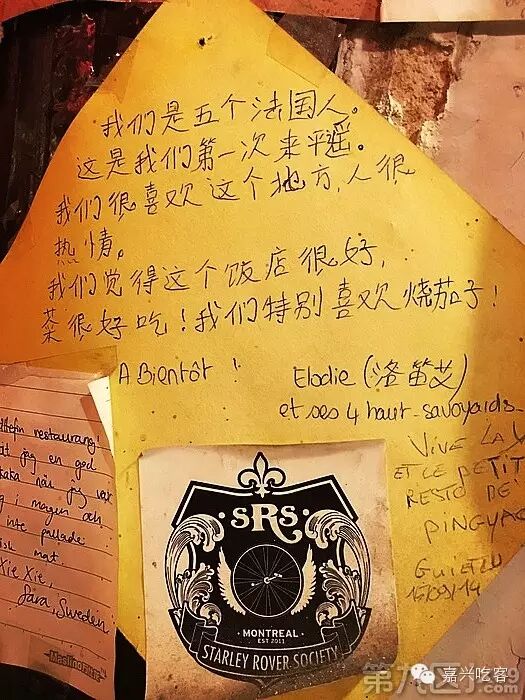 我们是五个法国人。
这是我们第一次来平遥。
我们很喜欢这个地方,人很
热情。
我们觉得这个饭店很好,
菜很好吃!我们特别喜欢烧茄子!
A Bientôt !
Elodie (洛笛艾)
et ses 4 haut-savoyards
VIVE LA
ET LE PETIT
RESTO DE
PINGYAO
15/09/14
restaurang!
jag en god
kaka när jag var
i magen och
inte pallade
mat.
Xie Xie,
Sara, Sweden
SRS
MONTREAL
EST 2011
STARLEY ROVER SOCIETY
嘉兴吃客